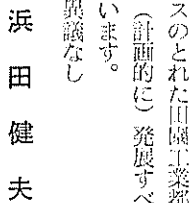 スのとれた田園工業都
（計画的に）発展すべ
います。
異議なし
浜田健夫